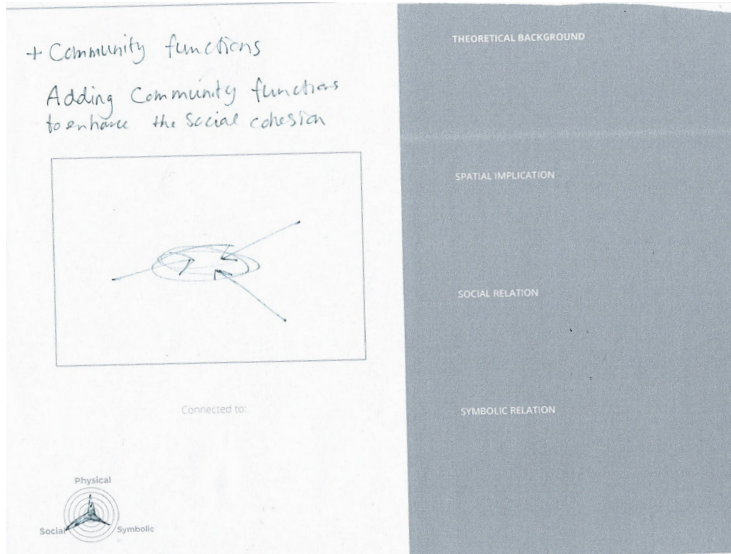 + Community functions
Adding Community functions
to enhance the Social cohesion
Connected to:
Physical
Social
Symbolic
THEORETICAL BACKGROUND
SPATIAL IMPLICATION
SOCIAL RELATION
SYMBOLIC RELATION